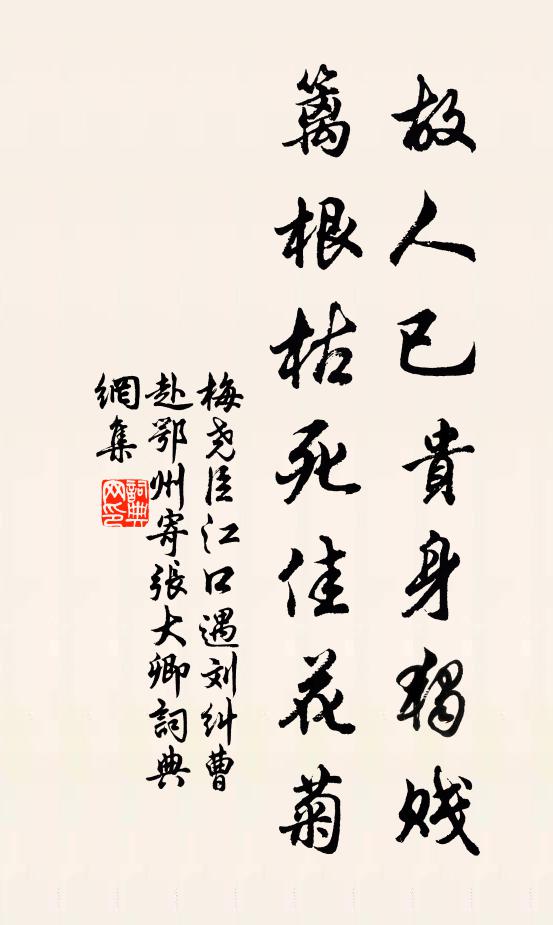 故人已貴身獨賤
籬根枯死佳花菊
梅尧臣江口遇刘纠曹
赴鄂州寄張大卿詞典
網集
詞典
网印